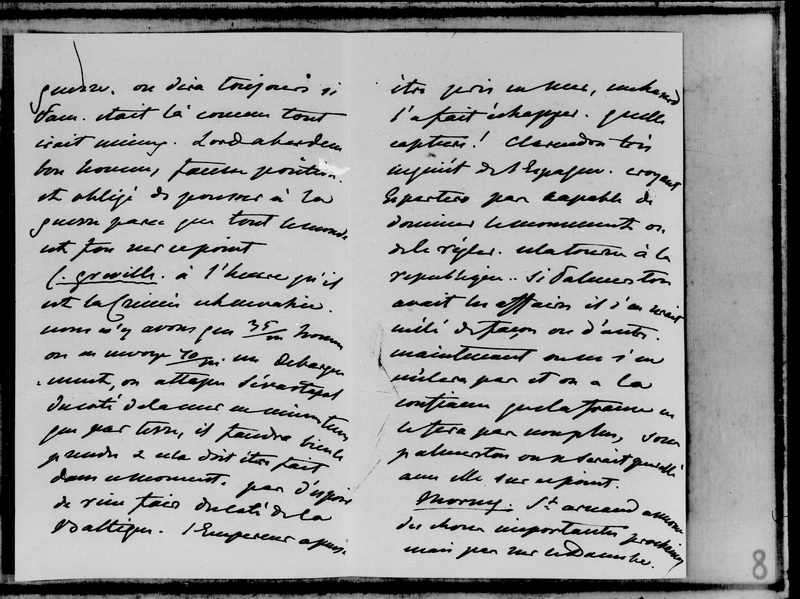 guerre. on dira toujours si
Palm. était là comme tout
irait mieux. Lord aberdeen
bon homme, fausse position.
et obligé de pousser à la
guerre parce que tout le monde
est fou sur ce point
C. greville. à l'heure qu'il
est la Crimée
nous n'y avons que 35/m hommes
on en envoye 70/m un Debarque
-ment, on attaque Sévastopol
du coté de la mer en même tems
que par terre, il faudra bien le
prendre & cela doit être fait
dans ce moment. pas d'espoir
de rien faire du coté de la
Baltique. l'Empereur a pensé
être pris en mer, un hazard
l'a fait échapper. quelle
capture! Clarendon très
inquiet de l'Espagne. croyant
Espartero pas capable de
dominer le mouvement ou
de le régler. cela tourne à la
republique. Si Palmerston
avait les affaires il s'en serait
mêlé de façon ou d'autre.
maintenant on ne s'en
mêlera pas et on a la
confiance que la france ne
le fera pas non plus, sous
palmerston on se serait querellé
avec elle sur ce point.
Morny. St arnaud annonce
des choses importantes prochaines
mais pas sur le Danube.
8